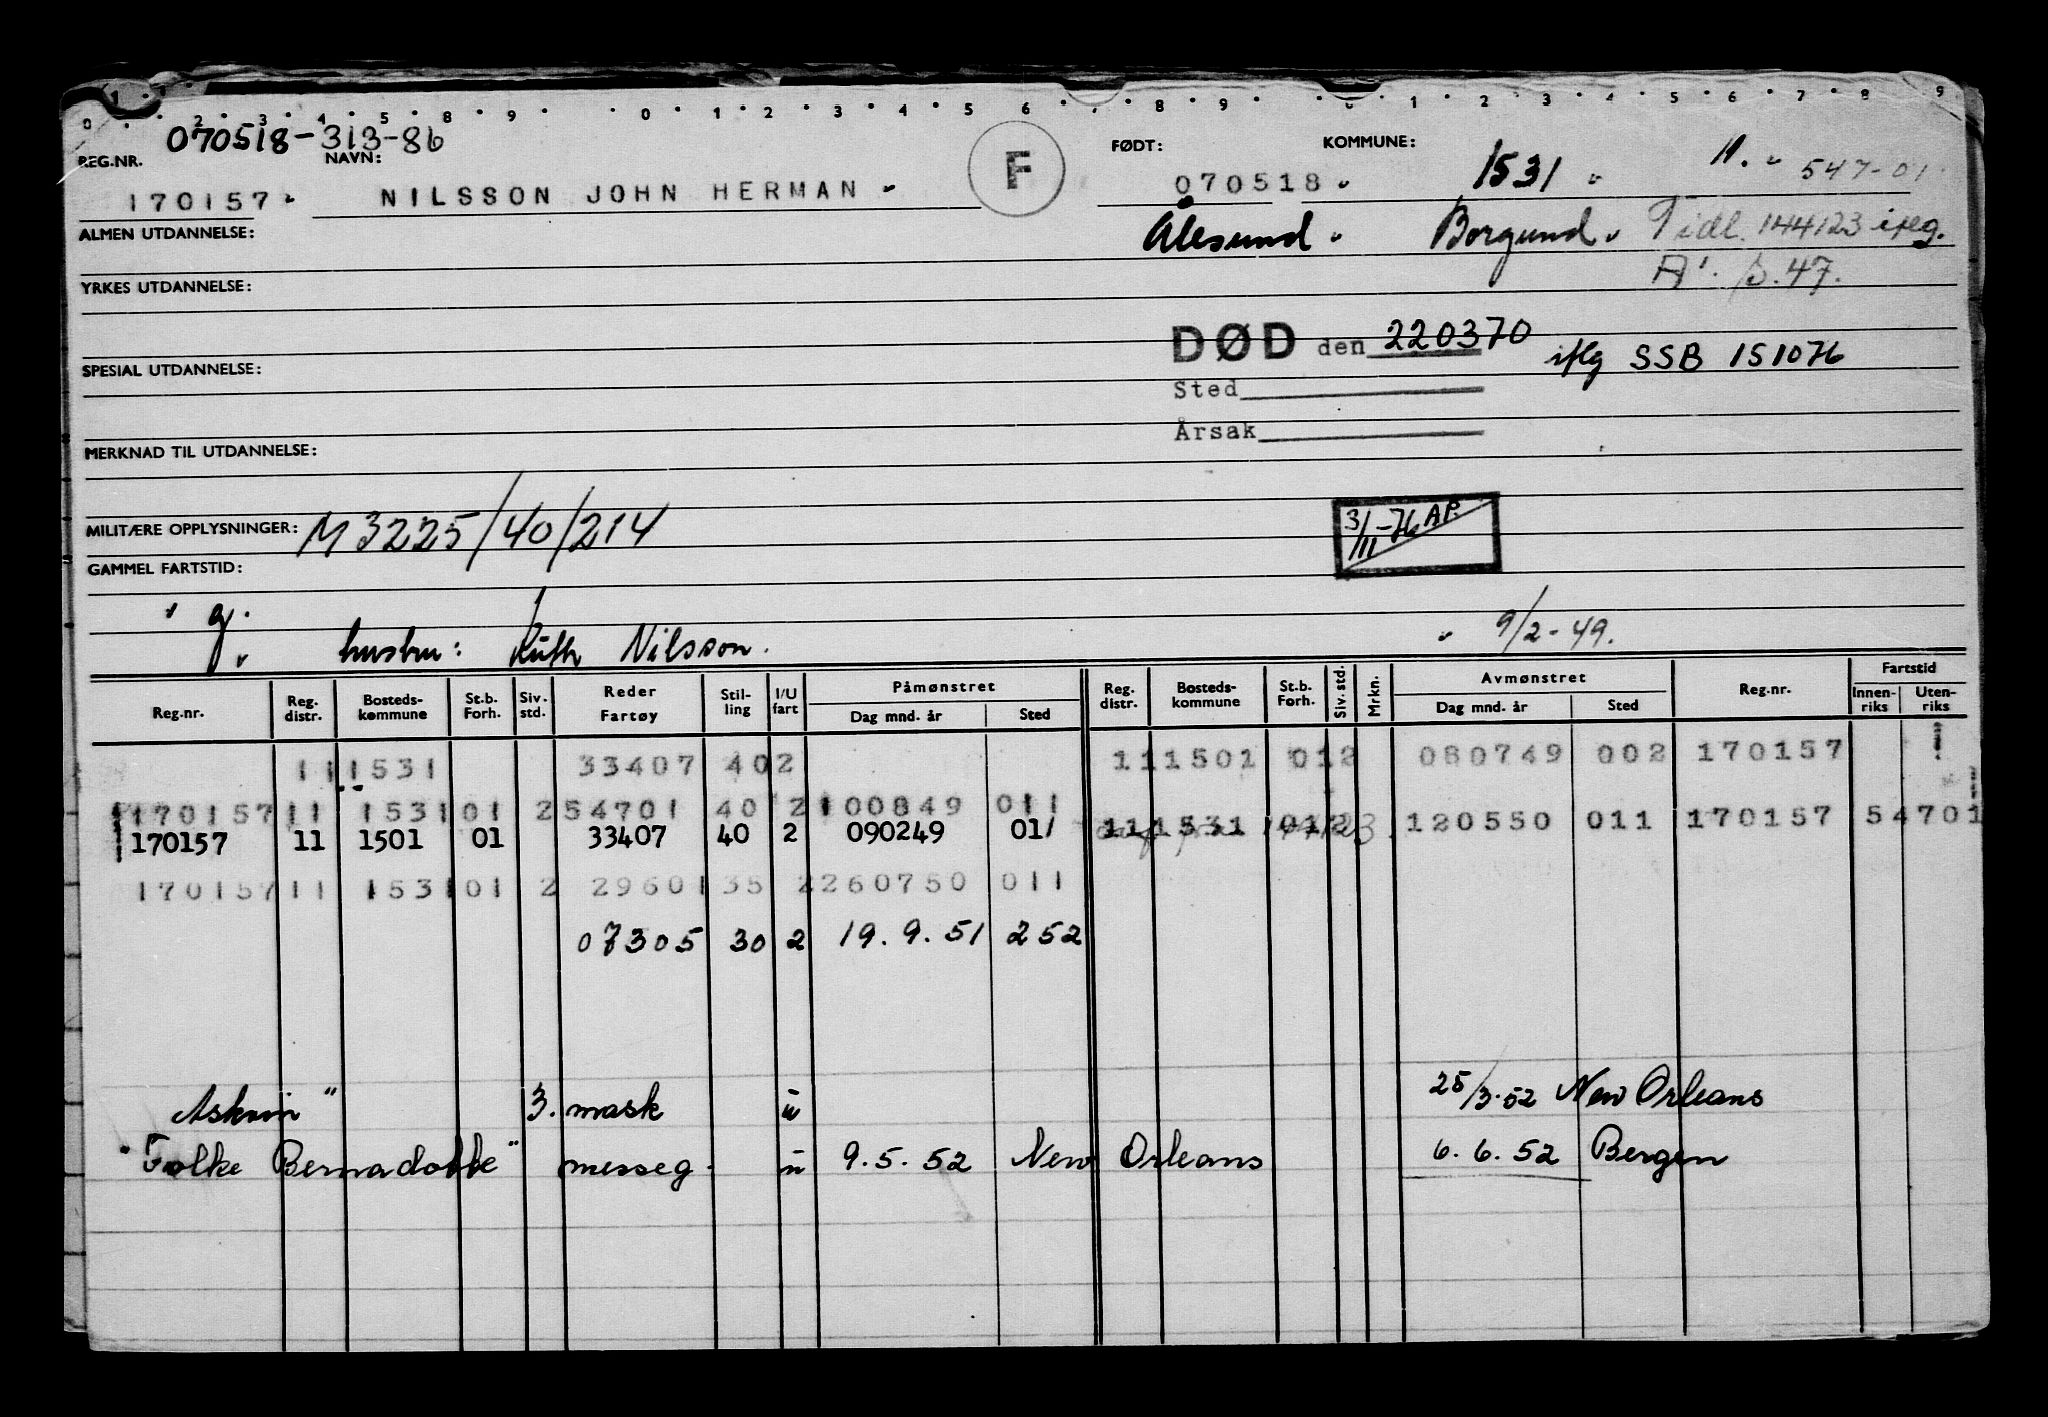 0 1 2 3 4 5 8 9 0 1 2 3 4 5 6 8 9 0 1 2 3 4 5 6 7 8 9
070518-313-86
REG.NR. NAVN: F FØDT: KOMMUNE:
170157 NILSSON JOHN HERMAN 070518 1531 11. 547-01
ALMEN UTDANNELSE: Ålesund Borgund Tidl. 144123 ifleg.
YRKES UTDANNELSE: A'. p.47.
DØD den 220370 iflg SSB 151076
SPESIAL UTDANNELSE:
Sted
Årsak
MERKNAD TIL UTDANNELSE:
MILITÆRE OPPLYSNINGER: M 3225/40/214 3/11-76 AP.
GAMMEL FARTSTID:
g.
hustru: Ruth Nilsson. 9/2-49.
Reg.nr. Reg. distr. Bosteds-kommune St.b. Forh. Siv. std. Reder Fartøy Stil-ling I/U fart Påmønstret Dag mnd. år Sted Reg. distr. Bosteds-kommune St.b. Forh. Siv. std. Mrkn. Avmønstret Dag mnd. år Sted Reg.nr. Fartstid Innen-riks Uten-riks
11 1531 33407 402 11 1501 012 080749 002 170157
170157 11 1531 01 2 54701 40 2 100849 011
170157 11 1501 01 33407 40 2 090249 011 11 1531 012 120550 011 170157 54701
170157 11 1531 01 2 29601 35 2 260750 011
07305 30 2 19.9.51 252
Askvin" 3. mask u 25/3.52 New Orleans
"Folke Bernadotte" messeg. u 9.5.52 New Orleans 6.6.52 Bergen